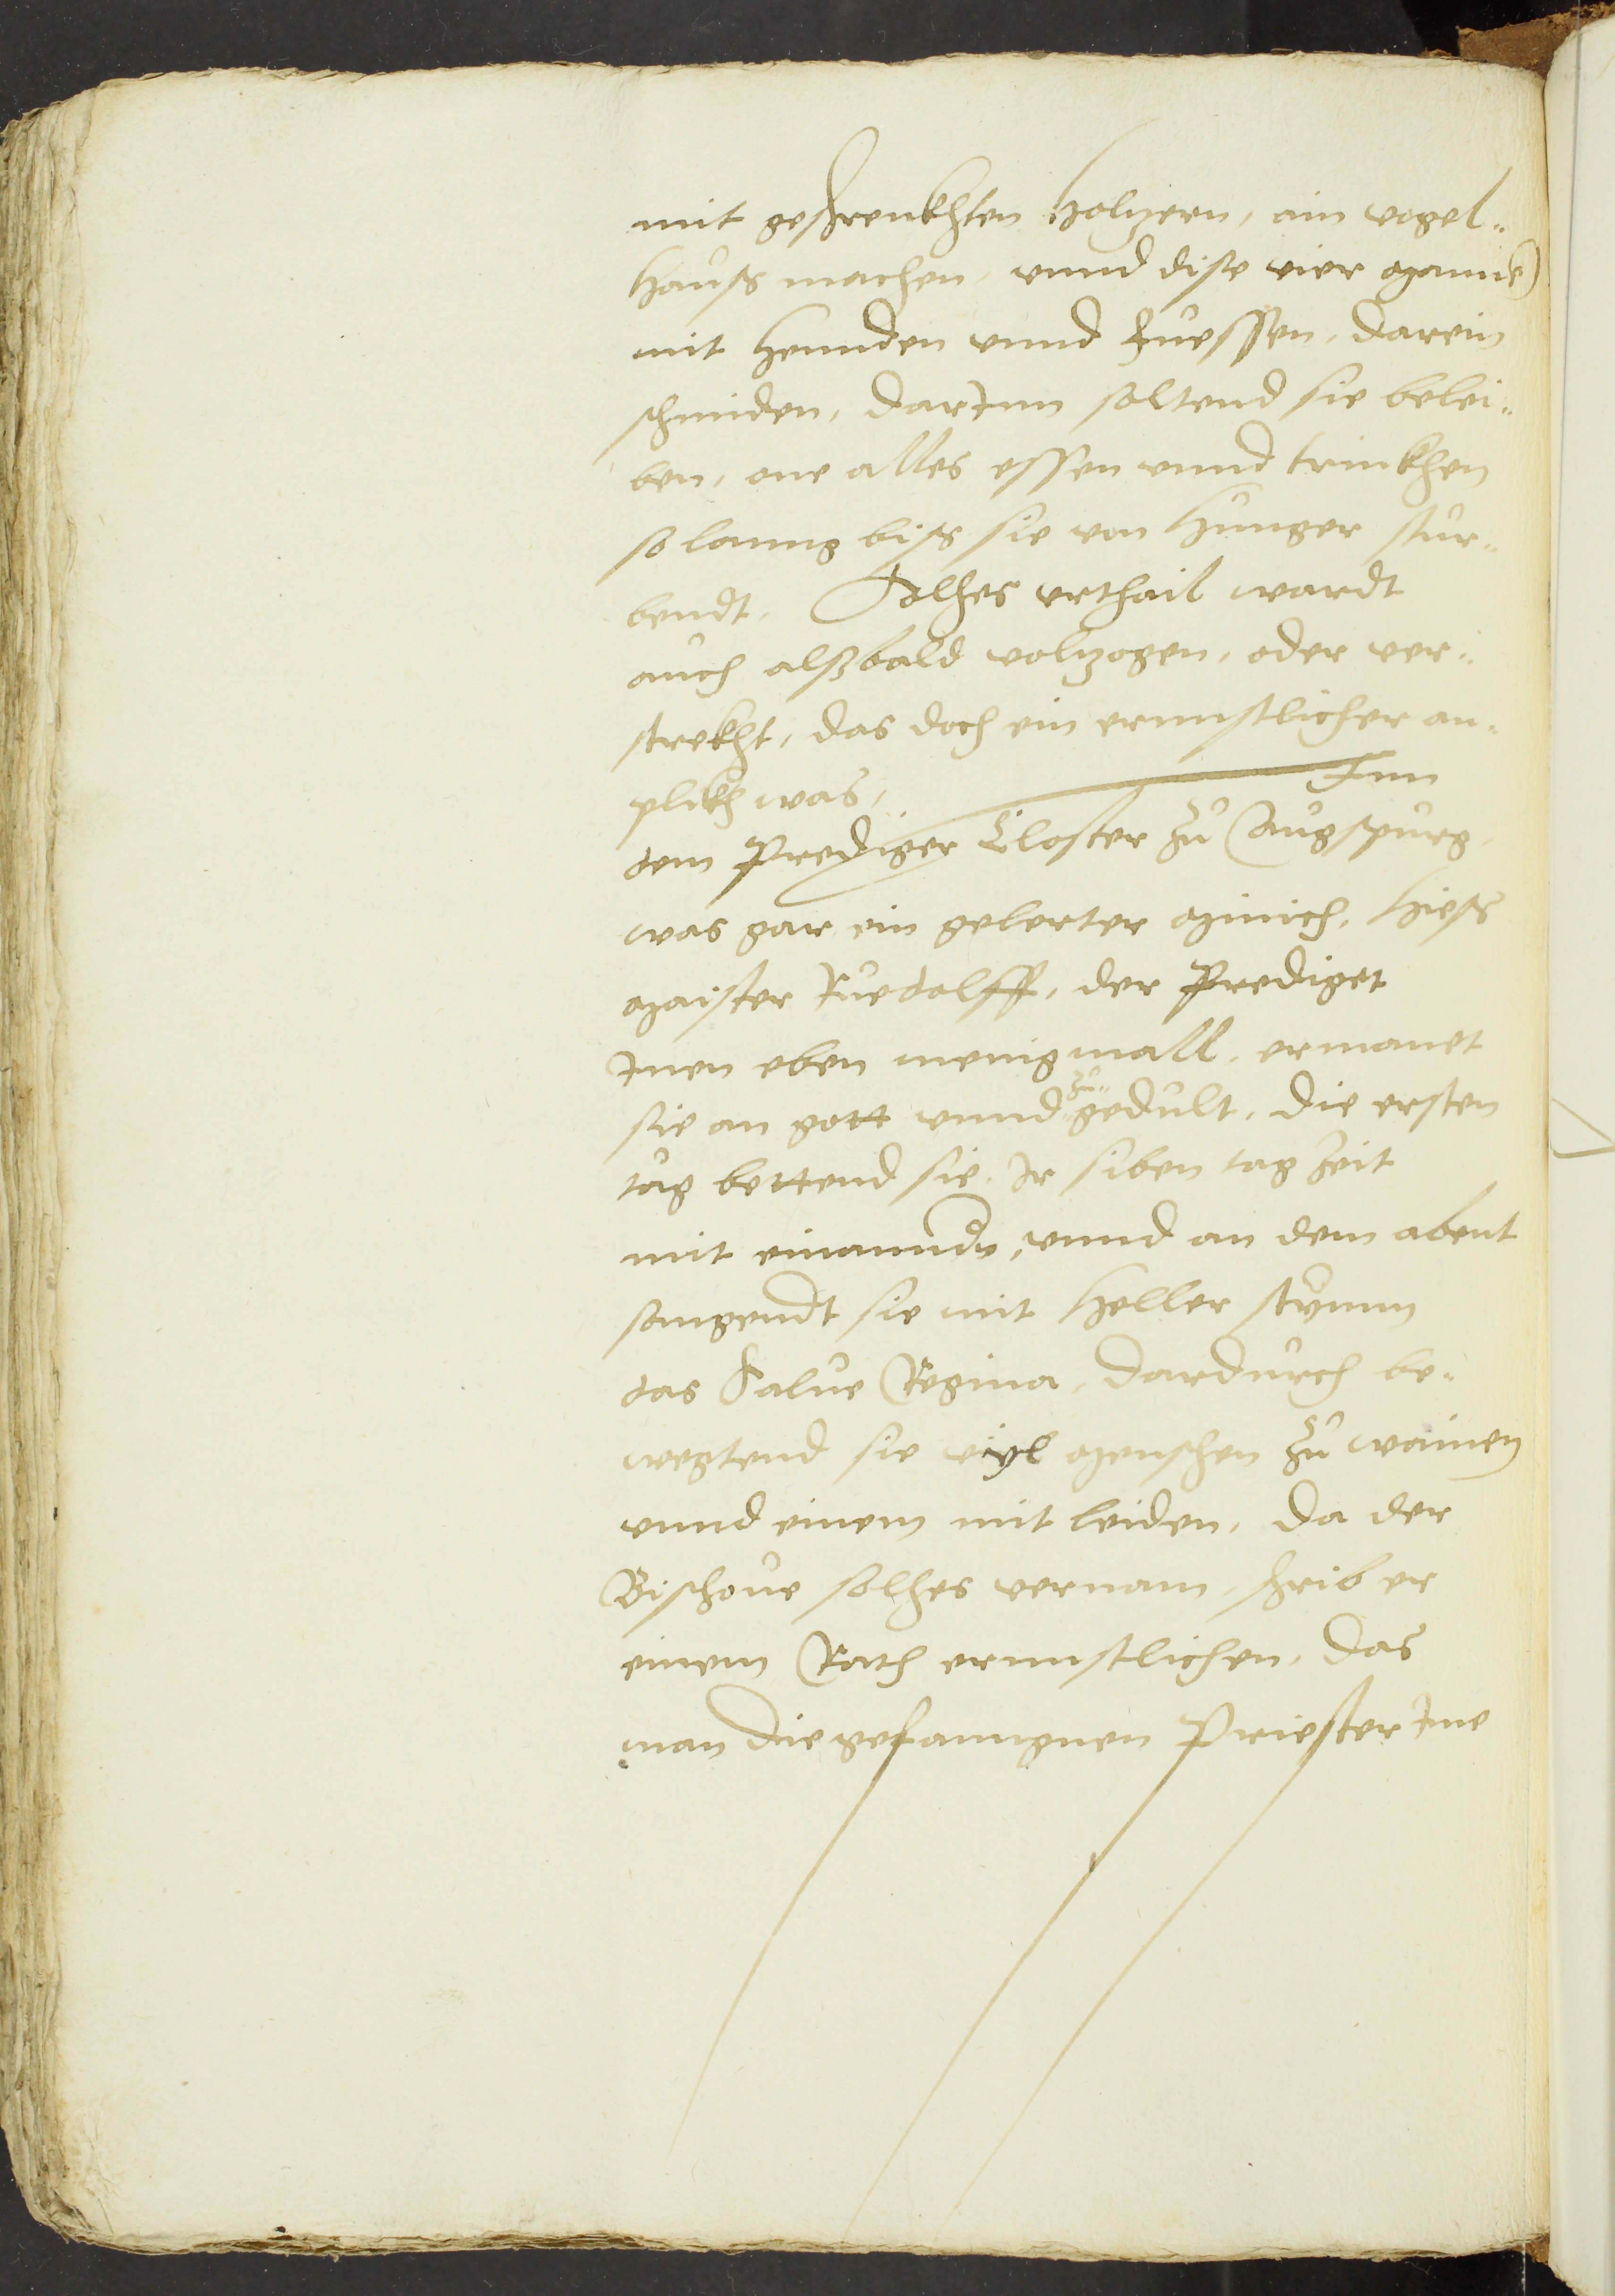 mit geschrenkhten Holtzern, ain vogel=
Hauß machen, vnnd dise vier Mann
mit Hennden vnnd Fuessen, darein
schmiden, dar Inn soltend sie belei=
ben, one alles essen vnnd trinkhen
so lanng biß sie von Hunger stur=
bendt. Solhes vrthail wardt
auch alßbald voltzogen, oder ver=
strekht, das doch ein ernnstlicher an=
plikh was, Inn
dem Prediger Closter zů Augspurg,
was gar ein gelerter Minich, Hieß
Maister Ruedolff, der Prediget
Inen eben menigmall, ermanet
sie an gott vnnd zu gedult, die ersten
tåg bettend sie Ir siben tag Zeit
mit einannder, vnnd an dem abent
sangendt sie mit Heller stymm
das Salue Regina, dardurch be=
wegtend sie viyl Menschen zů wainen
vnnd einem mit leiden, da der
Bischoue solhes vernam, schrib er
einem Rath ernnstlichen, das
man die gefanngnen Priester Ime